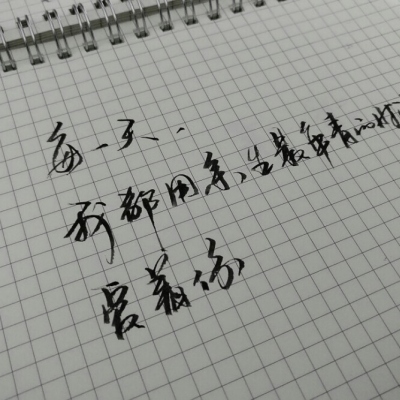 每一天,
我都用余生最年青的时
爱着你